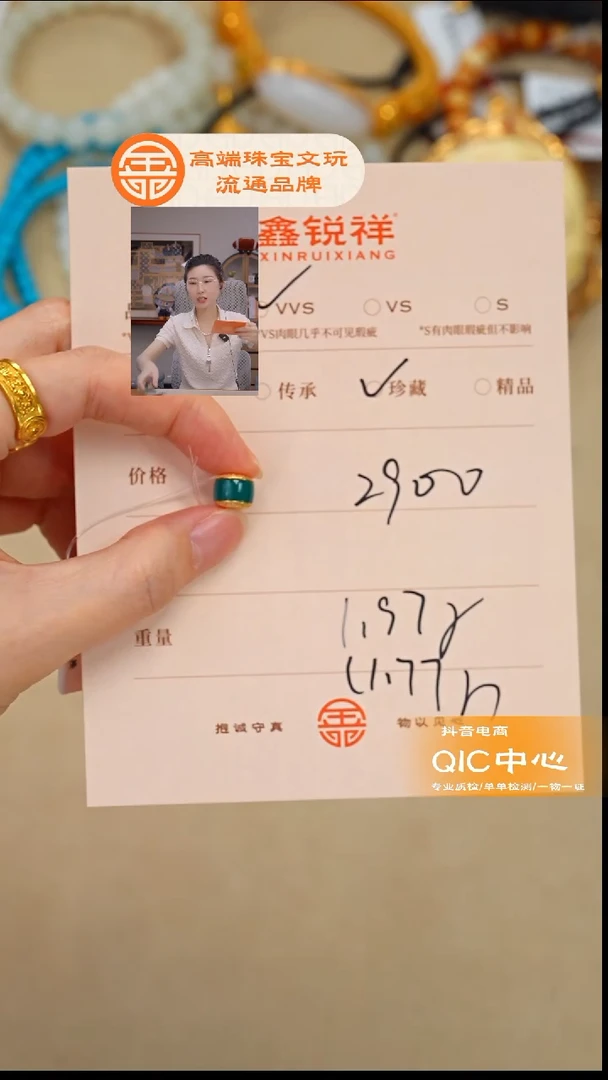 高端珠宝文玩
流通品牌
鑫锐祥
XINRUIXIANG
VVS VS S
VS肉眼几乎不可见瑕疵 *S有肉眼瑕疵但不影响
传承 珍藏 精品
价格 2900
重量 1.97g
推诚守真 物以见
抖音电商
QIC中心
专业质检/单单检测/一物一证